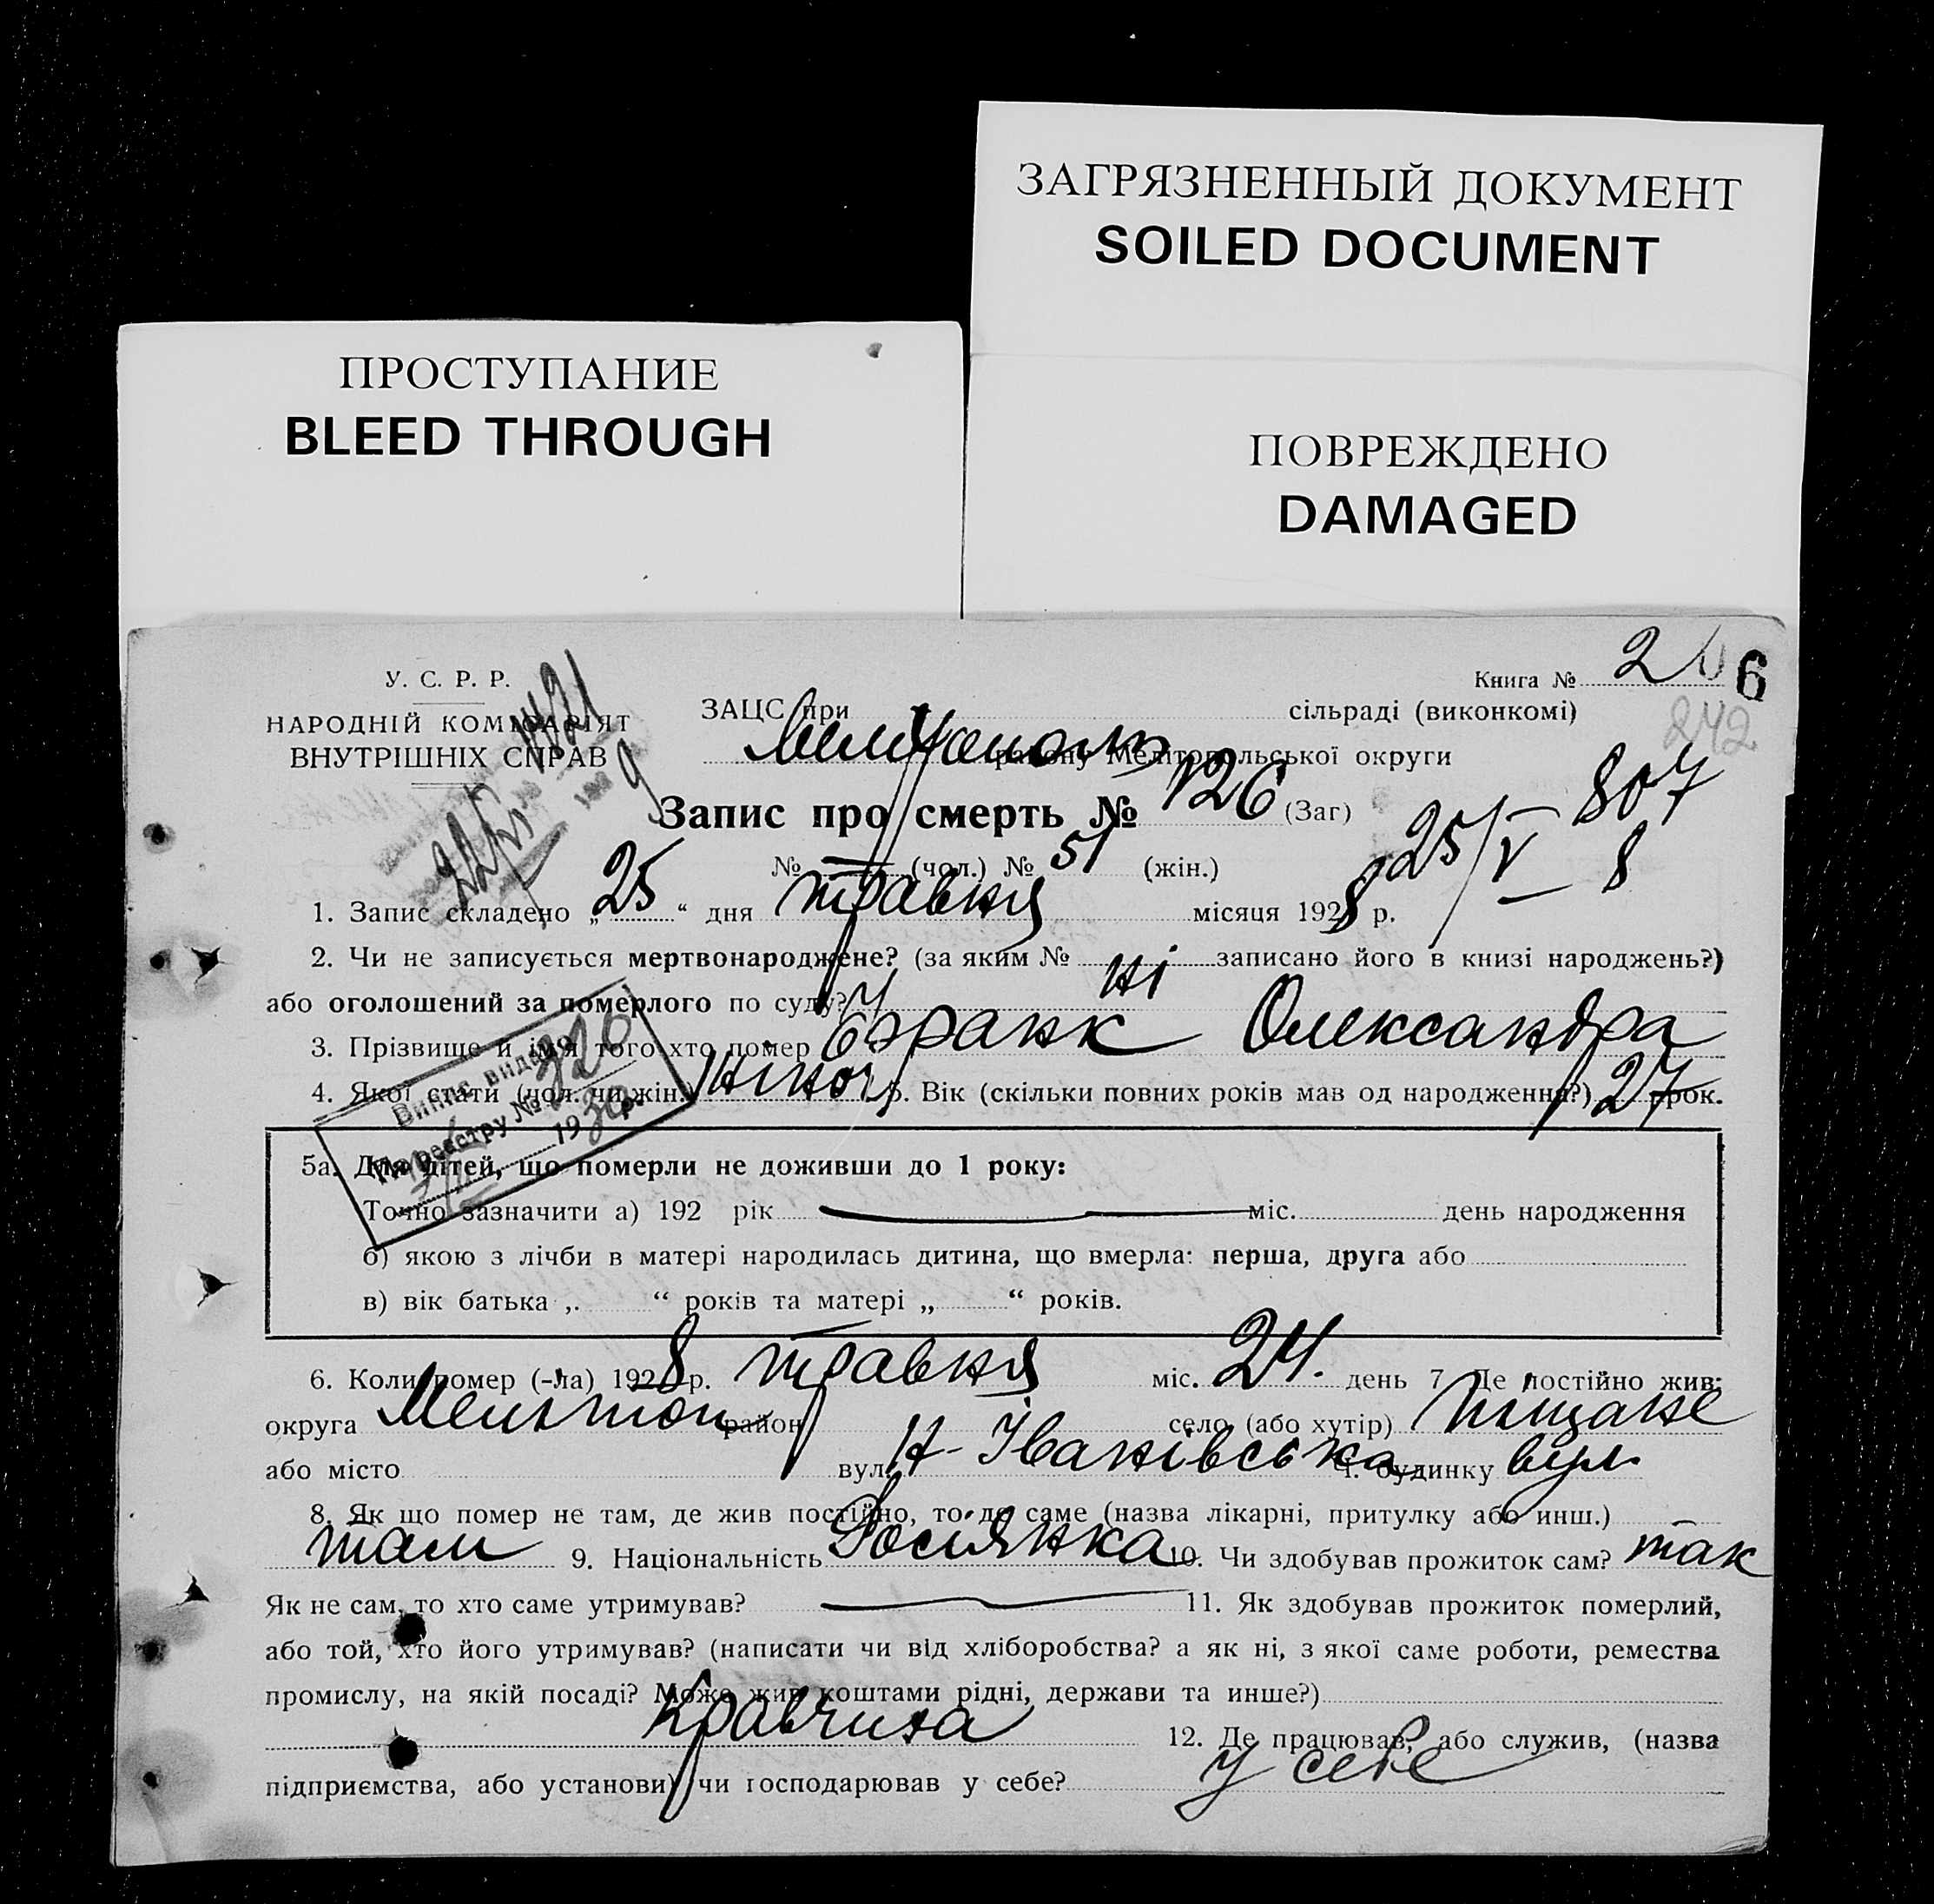 ЗАГРЯЗНЕННЫЙ ДОКУМЕНТ
SOILED DOCUMENT
ПРОСТУПАНИЕ
BLEED THROUGH
ПОВРЕЖДЕНО
DAMAGED
У. С. Р. Р.
НАРОДНІЙ КОМІСАРІЯТ
ВНУТРІШНІХ СПРАВ
Книга № 2 6
242
ЗАЦС при сільраді (виконкомі)
Мелітополь району Мелітопольської округи
807
Запис про смерть № 126 (Заг)
25/V 8
№ — (чол.) № 51 (жін.)
1. Запис складено „ 25 “ дня травня місяця 1928 р.
2. Чи не записується мертвонароджене? (за яким № ні записано його в книзі народжень?)
або оголошений за померлого по суду?
3. Прізвище й ім'я того хто помер Франк Олександра
4. Якої статі (чол. чи жін.) жіноч 5. Вік (скільки повних років мав од народження?) 27 рок.
Випис видано
По реєстру № 326
1930 р.
5а. Для дітей, що померли не доживши до 1 року:
Точно зазначити а) 192 рік міс. день народження
б) якою з лічби в матері народилась дитина, що вмерла: перша, друга або
в) вік батька „ “ років та матері „ “ років.
6. Коли помер (-ла) 1928 р. травня міс. 24. день 7. Де постійно жив:
округа Мелітоп район село (або хутір) Піщане
або місто вул. Н-Іванівська ч. будинку вул.
8. Як що помер не там, де жив постійно, то де саме (назва лікарні, притулку або инш.)
там 9. Національність Росіянка 10. Чи здобував прожиток сам? так
Як не сам, то хто саме утримував? — 11. Як здобував прожиток померлий,
або той, хто його утримував? (написати чи від хліборобства? а як ні, з якої саме роботи, ремества
промислу, на якій посаді? Може жив коштами рідні, держави та инше?)
Кравчиха 12. Де працював, або служив, (назва
підприємства, або установи) чи господарював у себе? у себе